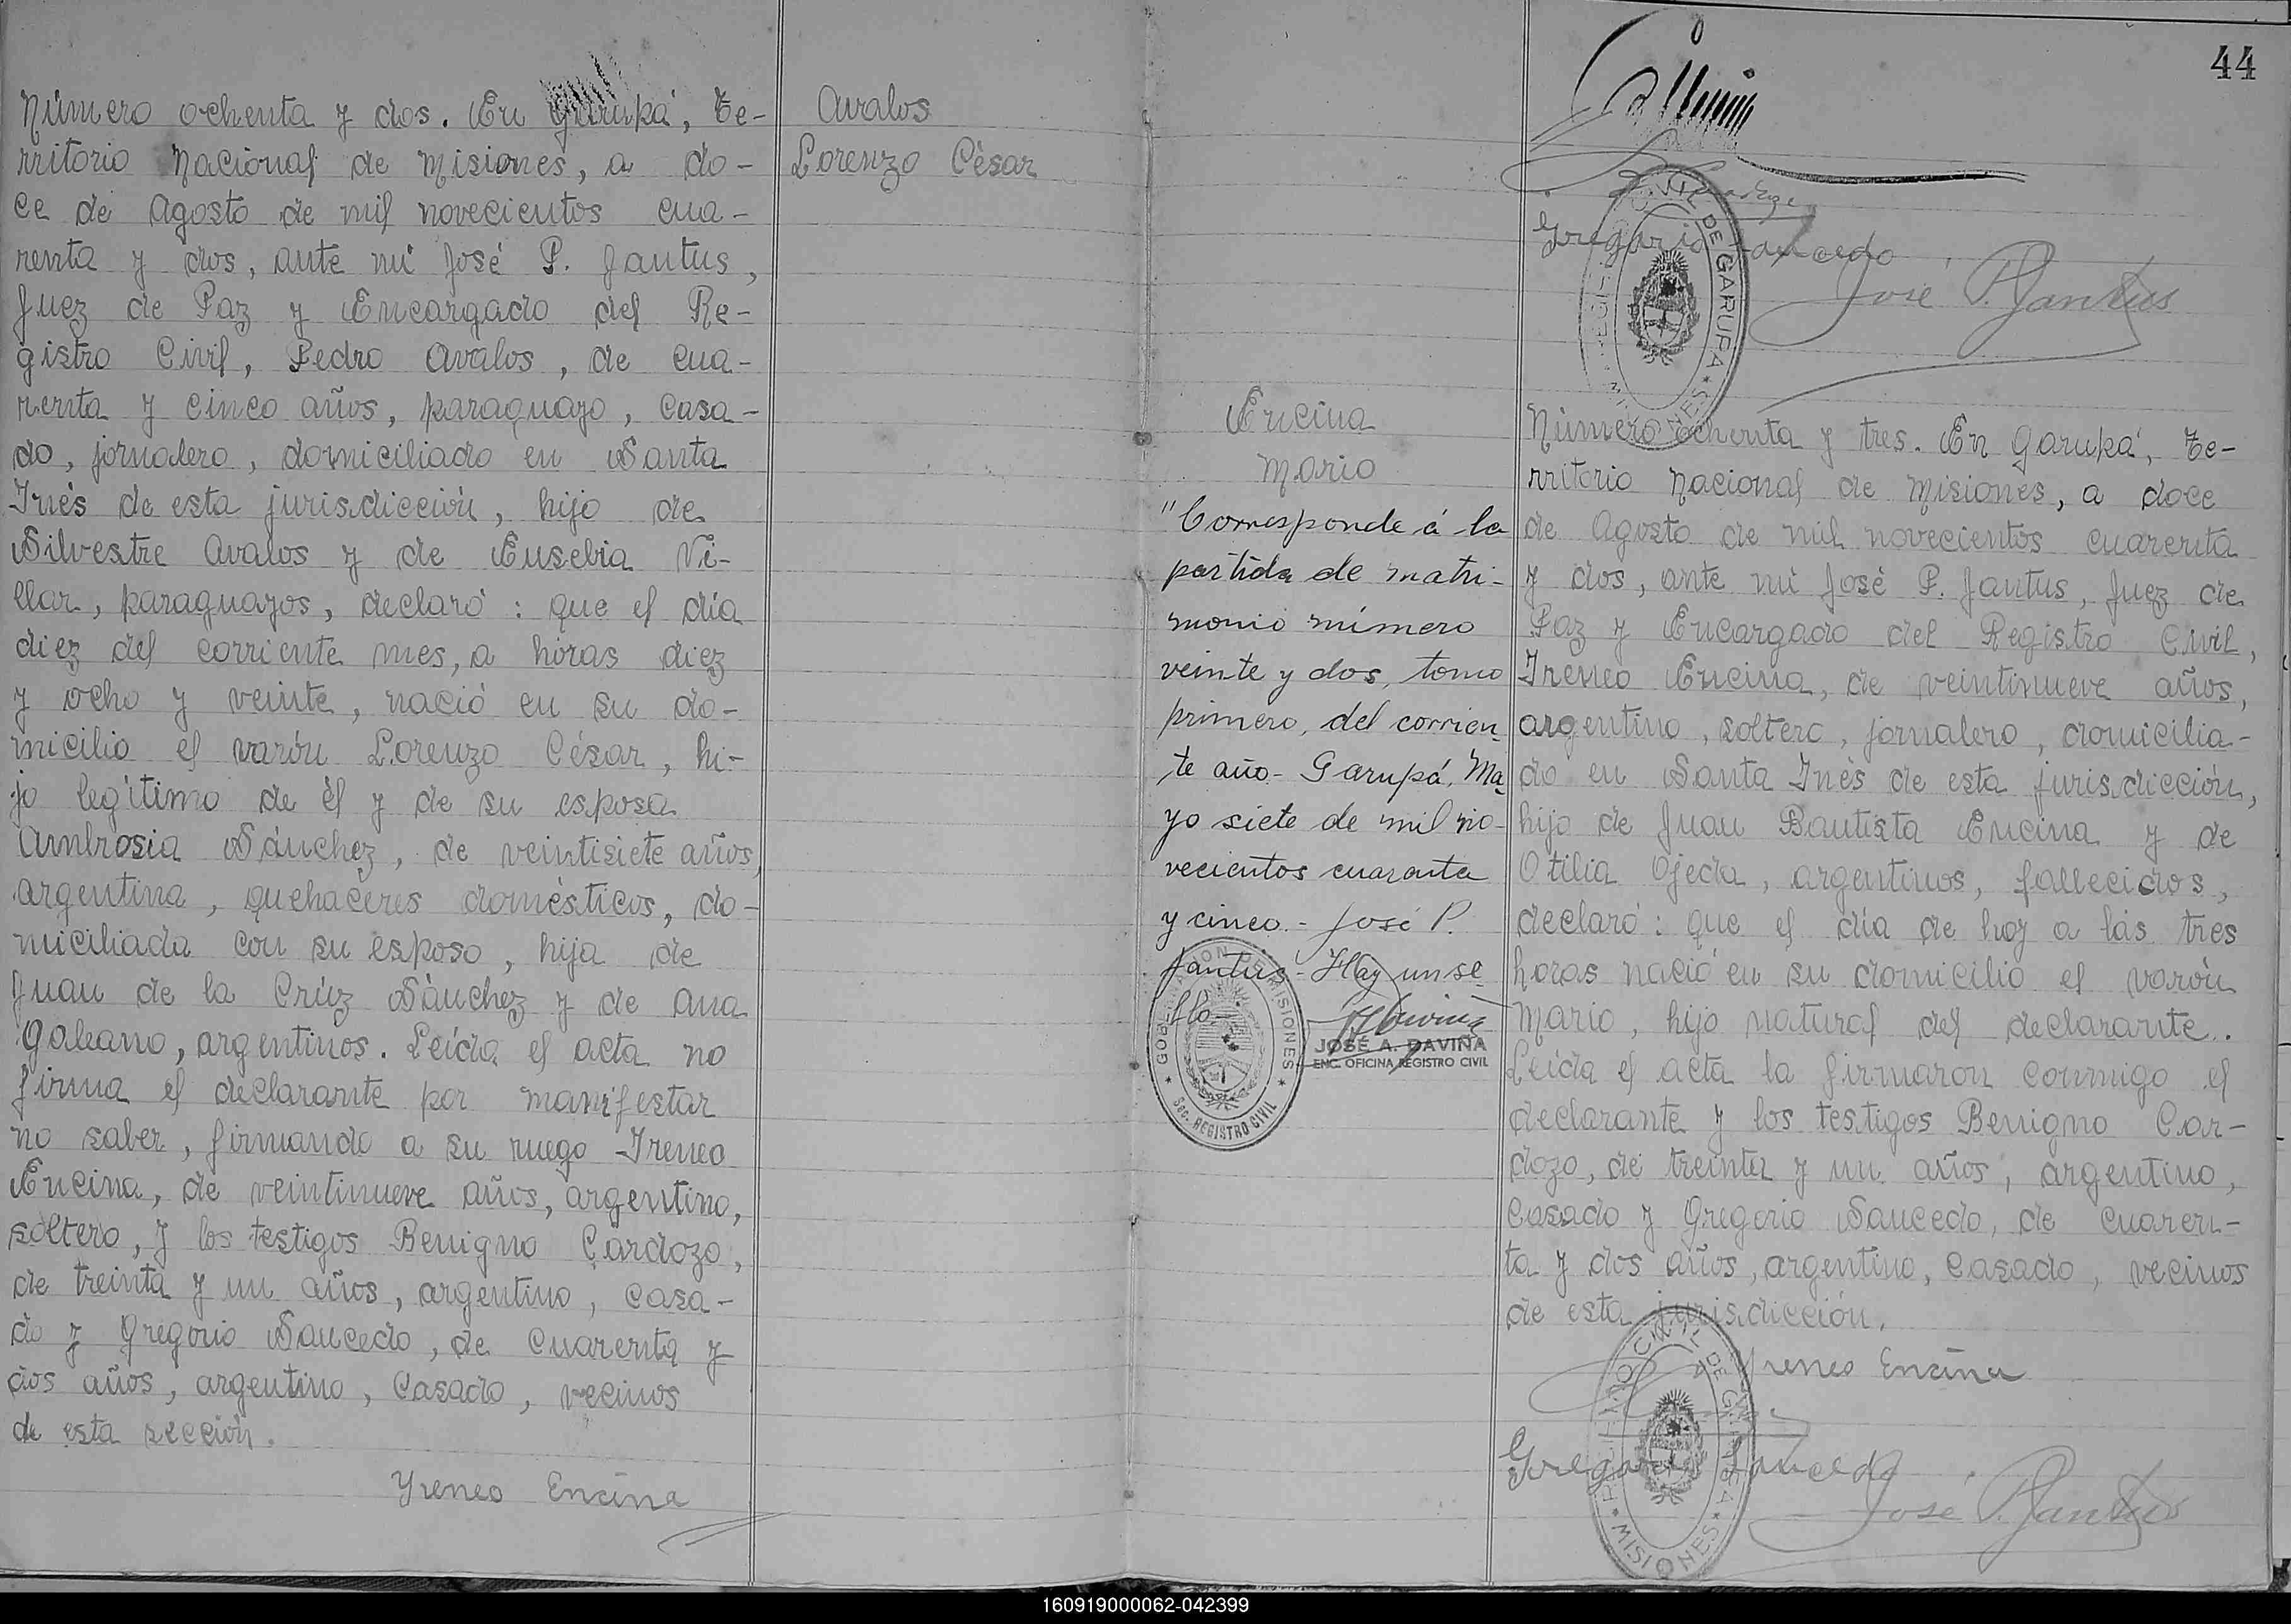 Número ochenta y dos. En Garupá, Te-
rritorio Nacional de Misiones, a do-
ce de Agosto de mil novecientos cua-
renta y dos, ante mí José P. Jantus,
Juez de Paz y Encargado del Re-
gistro Civil, Pedro Avalos, de cua-
renta y cinco años, paraguayo, casa-
do, jornalero, domiciliado en Santa
Inés de esta jurisdicción, hijo de
Silvestre Avalos y de Eusebia Vi-
llar, paraguayos, declaró: que el día
diez del corriente mes, a horas diez
y ocho y veinte, nació en su do-
micilio el varón Lorenzo César, hi-
jo legítimo de él y de su esposa
Ambrosia Sánchez, de veintisiete años,
argentina, quehaceres domésticos, do-
miciliada con su esposo, hija de
Juan de la Crúz Sánchez y de Ana
Galeano, argentinos. Leída el acta no
firma el declarante por manifestar
no saber, firmando a su ruego Ireneo
Encina, de veintinueve años, argentino,
soltero, y los testigos Benigno Cardozo,
de treinta y un años, argentino, casa-
do y Gregorio Saucedo, de cuarenta y
dos años, argentino, casado, vecinos
de esta sección.
Yreneo Encina
Avalos
Lorenzo César
44
Gregorio Saucedo
José P. Jantus
REGISTRO CIVIL DE GARUPA * MISIONES *
Encina
Mario
"Corresponde á la
partida de matri-
monio número
veinte y dos, tomo
primero, del corrien-
te año - Garupá, Ma-
yo siete de mil no-
vecientos cuarenta
y cinco. - José P.
Jantus - Hay un se-
llo -
JOSÉ A. DAVIÑA
ENC. OFICINA REGISTRO CIVIL
GOBERNACION DE MISIONES
* Sec. REGISTRO CIVIL *
Número ochenta y tres. En Garupá, Te-
rritorio Nacional de Misiones, a doce
de Agosto de mil novecientos cuarenta
y dos, ante mí José P. Jantus, Juez de
Paz y Encargado del Registro Civil,
Ireneo Encina, de veintinueve años,
argentino, soltero, jornalero, domicilia-
do en Santa Inés de esta jurisdicción,
hijo de Juan Bautista Encina y de
Otilia Ojeda, argentinos, fallecidos,
declaró: que el día de hoy a las tres
horas nació en su domicilio el varón
Mario, hijo natural del declarante.
Leída el acta la firmaron conmigo el
declarante y los testigos Benigno Car-
dozo, de treinta y un años, argentino,
casado y Gregorio Saucedo, de cuaren-
ta y dos años, argentino, casado, vecinos
de esta jurisdicción.
Yreneo Encina
Gregorio Saucedo
José P. Jantus
REGISTRO CIVIL DE GARUPA * MISIONES *
160919000062-042399